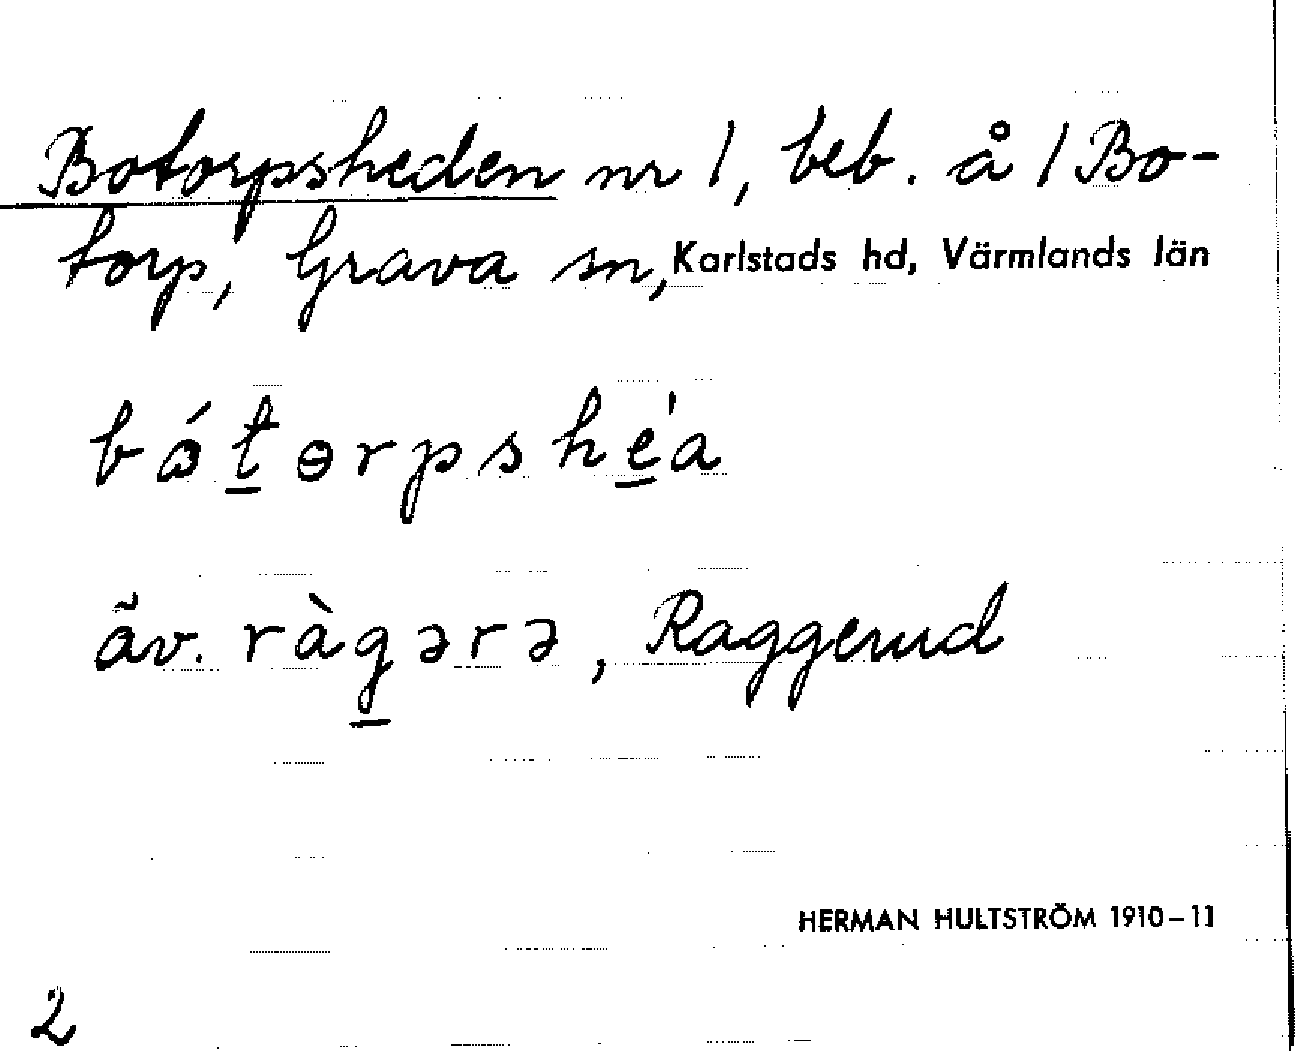 Botorpsheden nr 1, beb. å 1 Bo-
torp, Grava sn, Karlstads hd, Värmlands län
bótɵrpshe̱'a
äv. ràg̱ərə, Raggerud
HERMAN HULTSTRÖM 1910–11
2